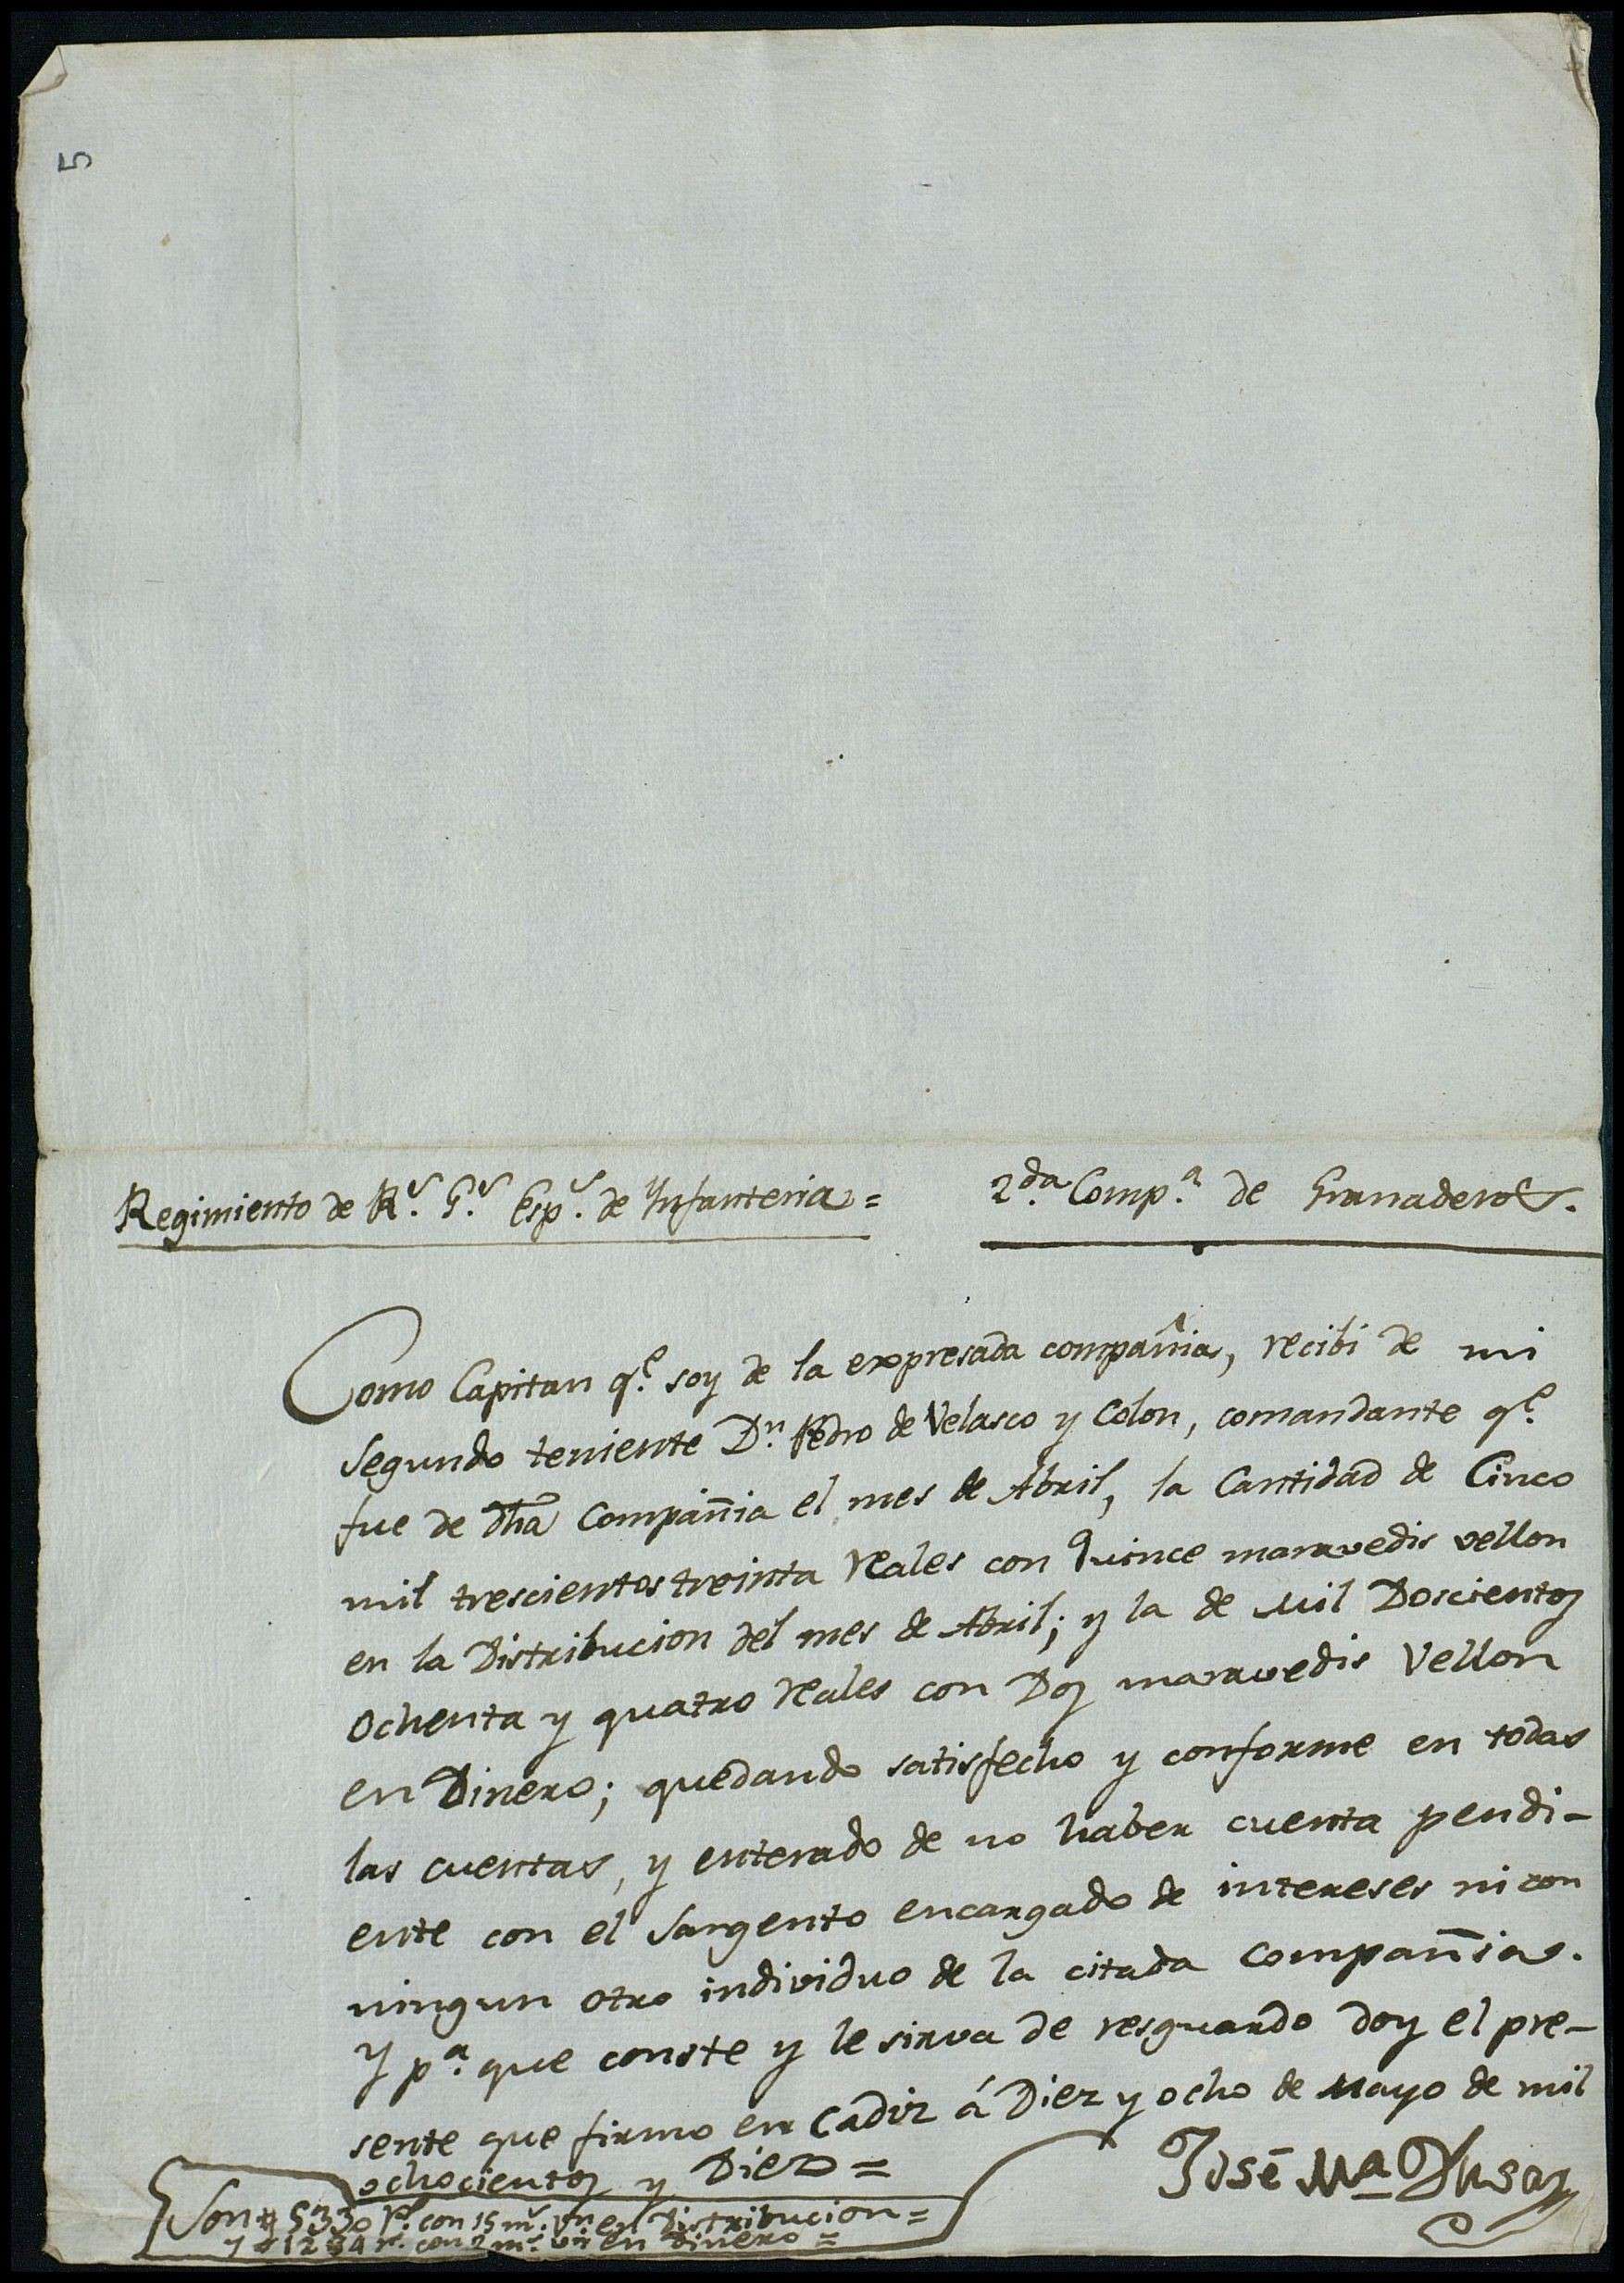 5
Regimiento de R.s G.s Esp.s de Ynfanteria= 2.da Comp.a de Granaderos.
Como Capitan q.e soy de la expresada compañia, recibi de mi
segundo teniente D.n Pedro de Velasco y Colon, comandante q.e
fue de dha Compañia el mes de Abril, la Cantidad de Cinco
mil trescientos treinta reales con quince maravedis vellon
en la Distribucion del mes de Abril; y la de Mil Doscientos
ochenta y quatro reales con Dos maravedis Vellon
en Dinero; quedando satisfecho y conforme en todas
las cuentas, y enterado de no haber cuenta pendi-
ente con el Sargento encargado de intereses ni con
ningun otro individuo de la citada compañia.
Y p.a que conste y le sirva de resguardo doy el pre-
sente que firmo en Cadiz á Diez y ocho de Mayo de mil
ochocientos y Diez=
José M.a
Son # 5330 r.s con 15 m.s v.n en Distribucion=
y # 1284 r.s con 2 m.s v.n en Dinero=